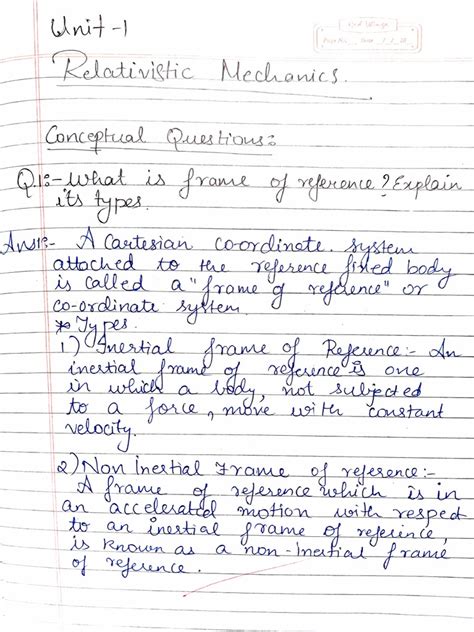 Unit-1
Relativistic Mechanics.
Conceptual Questions:-
Q.1:- What is frame of reference? Explain
its types.
Ans1:- A Cartesian co-ordinate system
attached to the reference fixed body
is called a "frame of refrence" or
co-ordinate system.
* Types.
1) Inertial frame of Reference:- An
inertial frame of reference is one
in which a body, not subjected
to a force, move with constant
velocity.
2) Non Inertial Frame of reference:-
A frame of reference which is in
an accelerated motion with respect
to an inertial frame of reference,
is known as a non-Inertial frame
of reference.